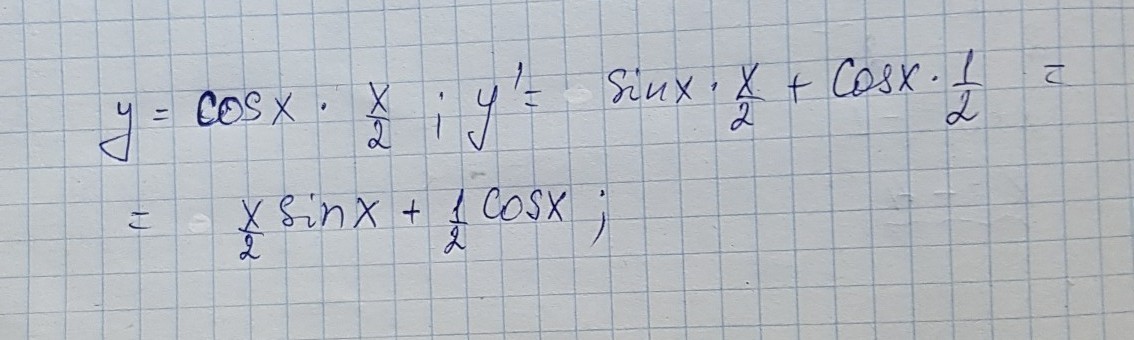 y = cosx · x/2 ; y' = sinx · x/2 + cosx · 1/2 =
= x/2 sinx + 1/2 cosx ;